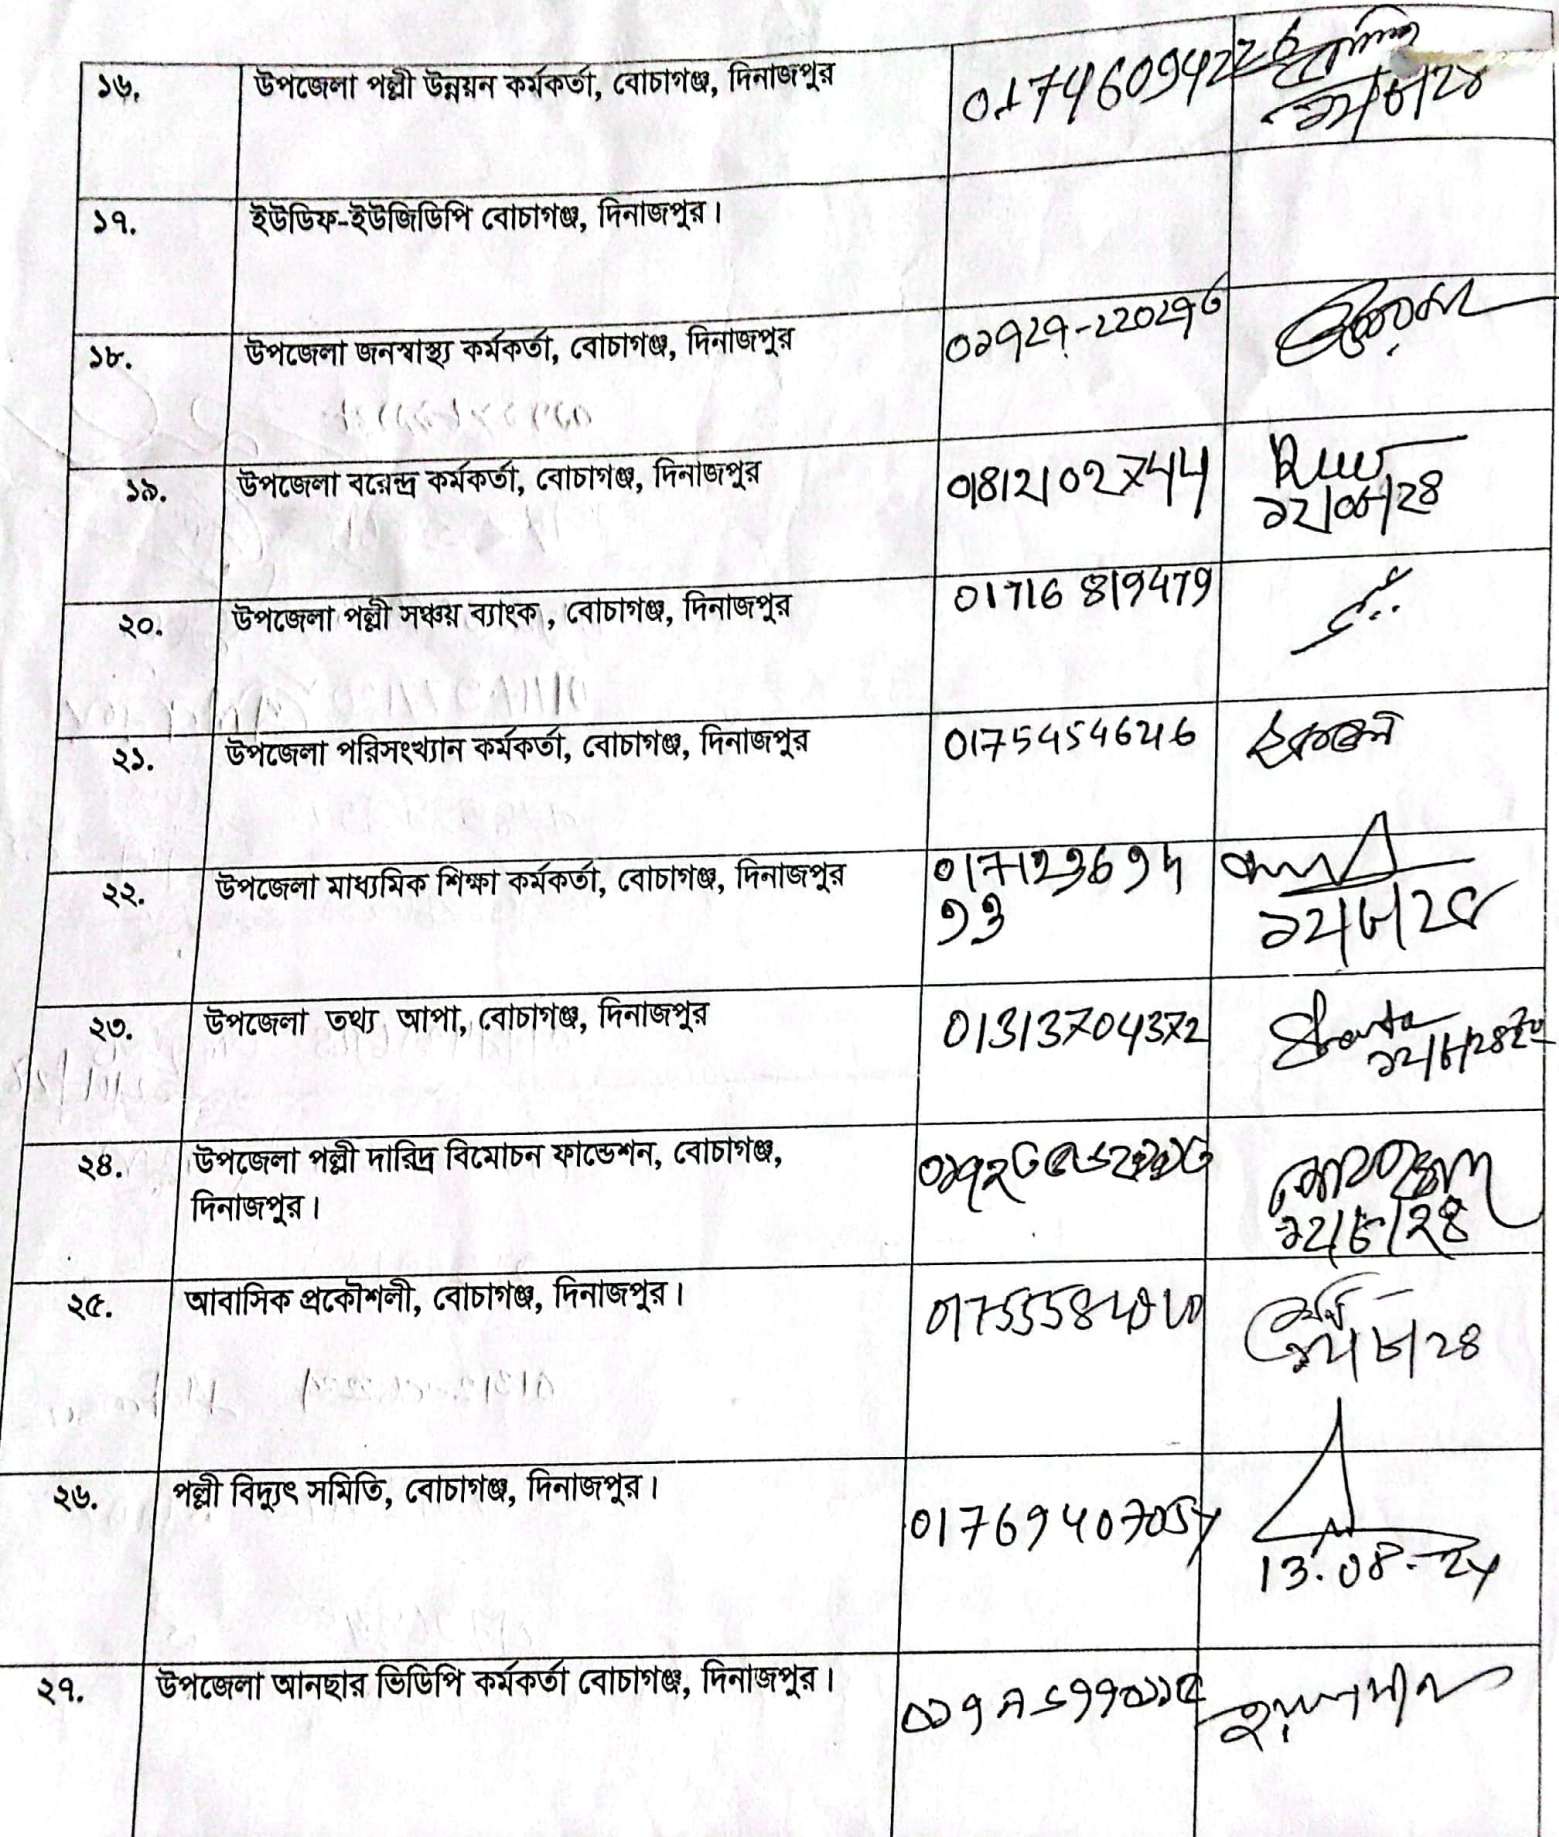 ১৬. উপজেলা পল্লী উন্নয়ন কর্মকর্তা, বোচাগঞ্জ, দিনাজপুর 01746094226
১৭. ইউডিফ-ইউজিডিপি বোচাগঞ্জ, দিনাজপুর।
১৮. উপজেলা জনস্বাস্থ্য কর্মকর্তা, বোচাগঞ্জ, দিনাজপুর
১৯. উপজেলা বরেন্দ্র কর্মকর্তা, বোচাগঞ্জ, দিনাজপুর 01812102744
১২/০৮/২৪
২০. উপজেলা পল্লী সঞ্চয় ব্যাংক , বোচাগঞ্জ, দিনাজপুর 01716 819479
২১. উপজেলা পরিসংখ্যান কর্মকর্তা, বোচাগঞ্জ, দিনাজপুর 01754546246
২২. উপজেলা মাধ্যমিক শিক্ষা কর্মকর্তা, বোচাগঞ্জ, দিনাজপুর
১২/৮/২৪
২৩. উপজেলা তথ্য আপা, বোচাগঞ্জ, দিনাজপুর 01313704372
২৪. উপজেলা পল্লী দারিদ্র বিমোচন ফান্ডেশন, বোচাগঞ্জ,
দিনাজপুর।
১২/৮/২৪
২৫. আবাসিক প্রকৌশলী, বোচাগঞ্জ, দিনাজপুর।
১২/৮/২৪
২৬. পল্লী বিদ্যুৎ সমিতি, বোচাগঞ্জ, দিনাজপুর। 01769407054
13.08.-24
২৭. উপজেলা আনছার ভিডিপি কর্মকর্তা বোচাগঞ্জ, দিনাজপুর।